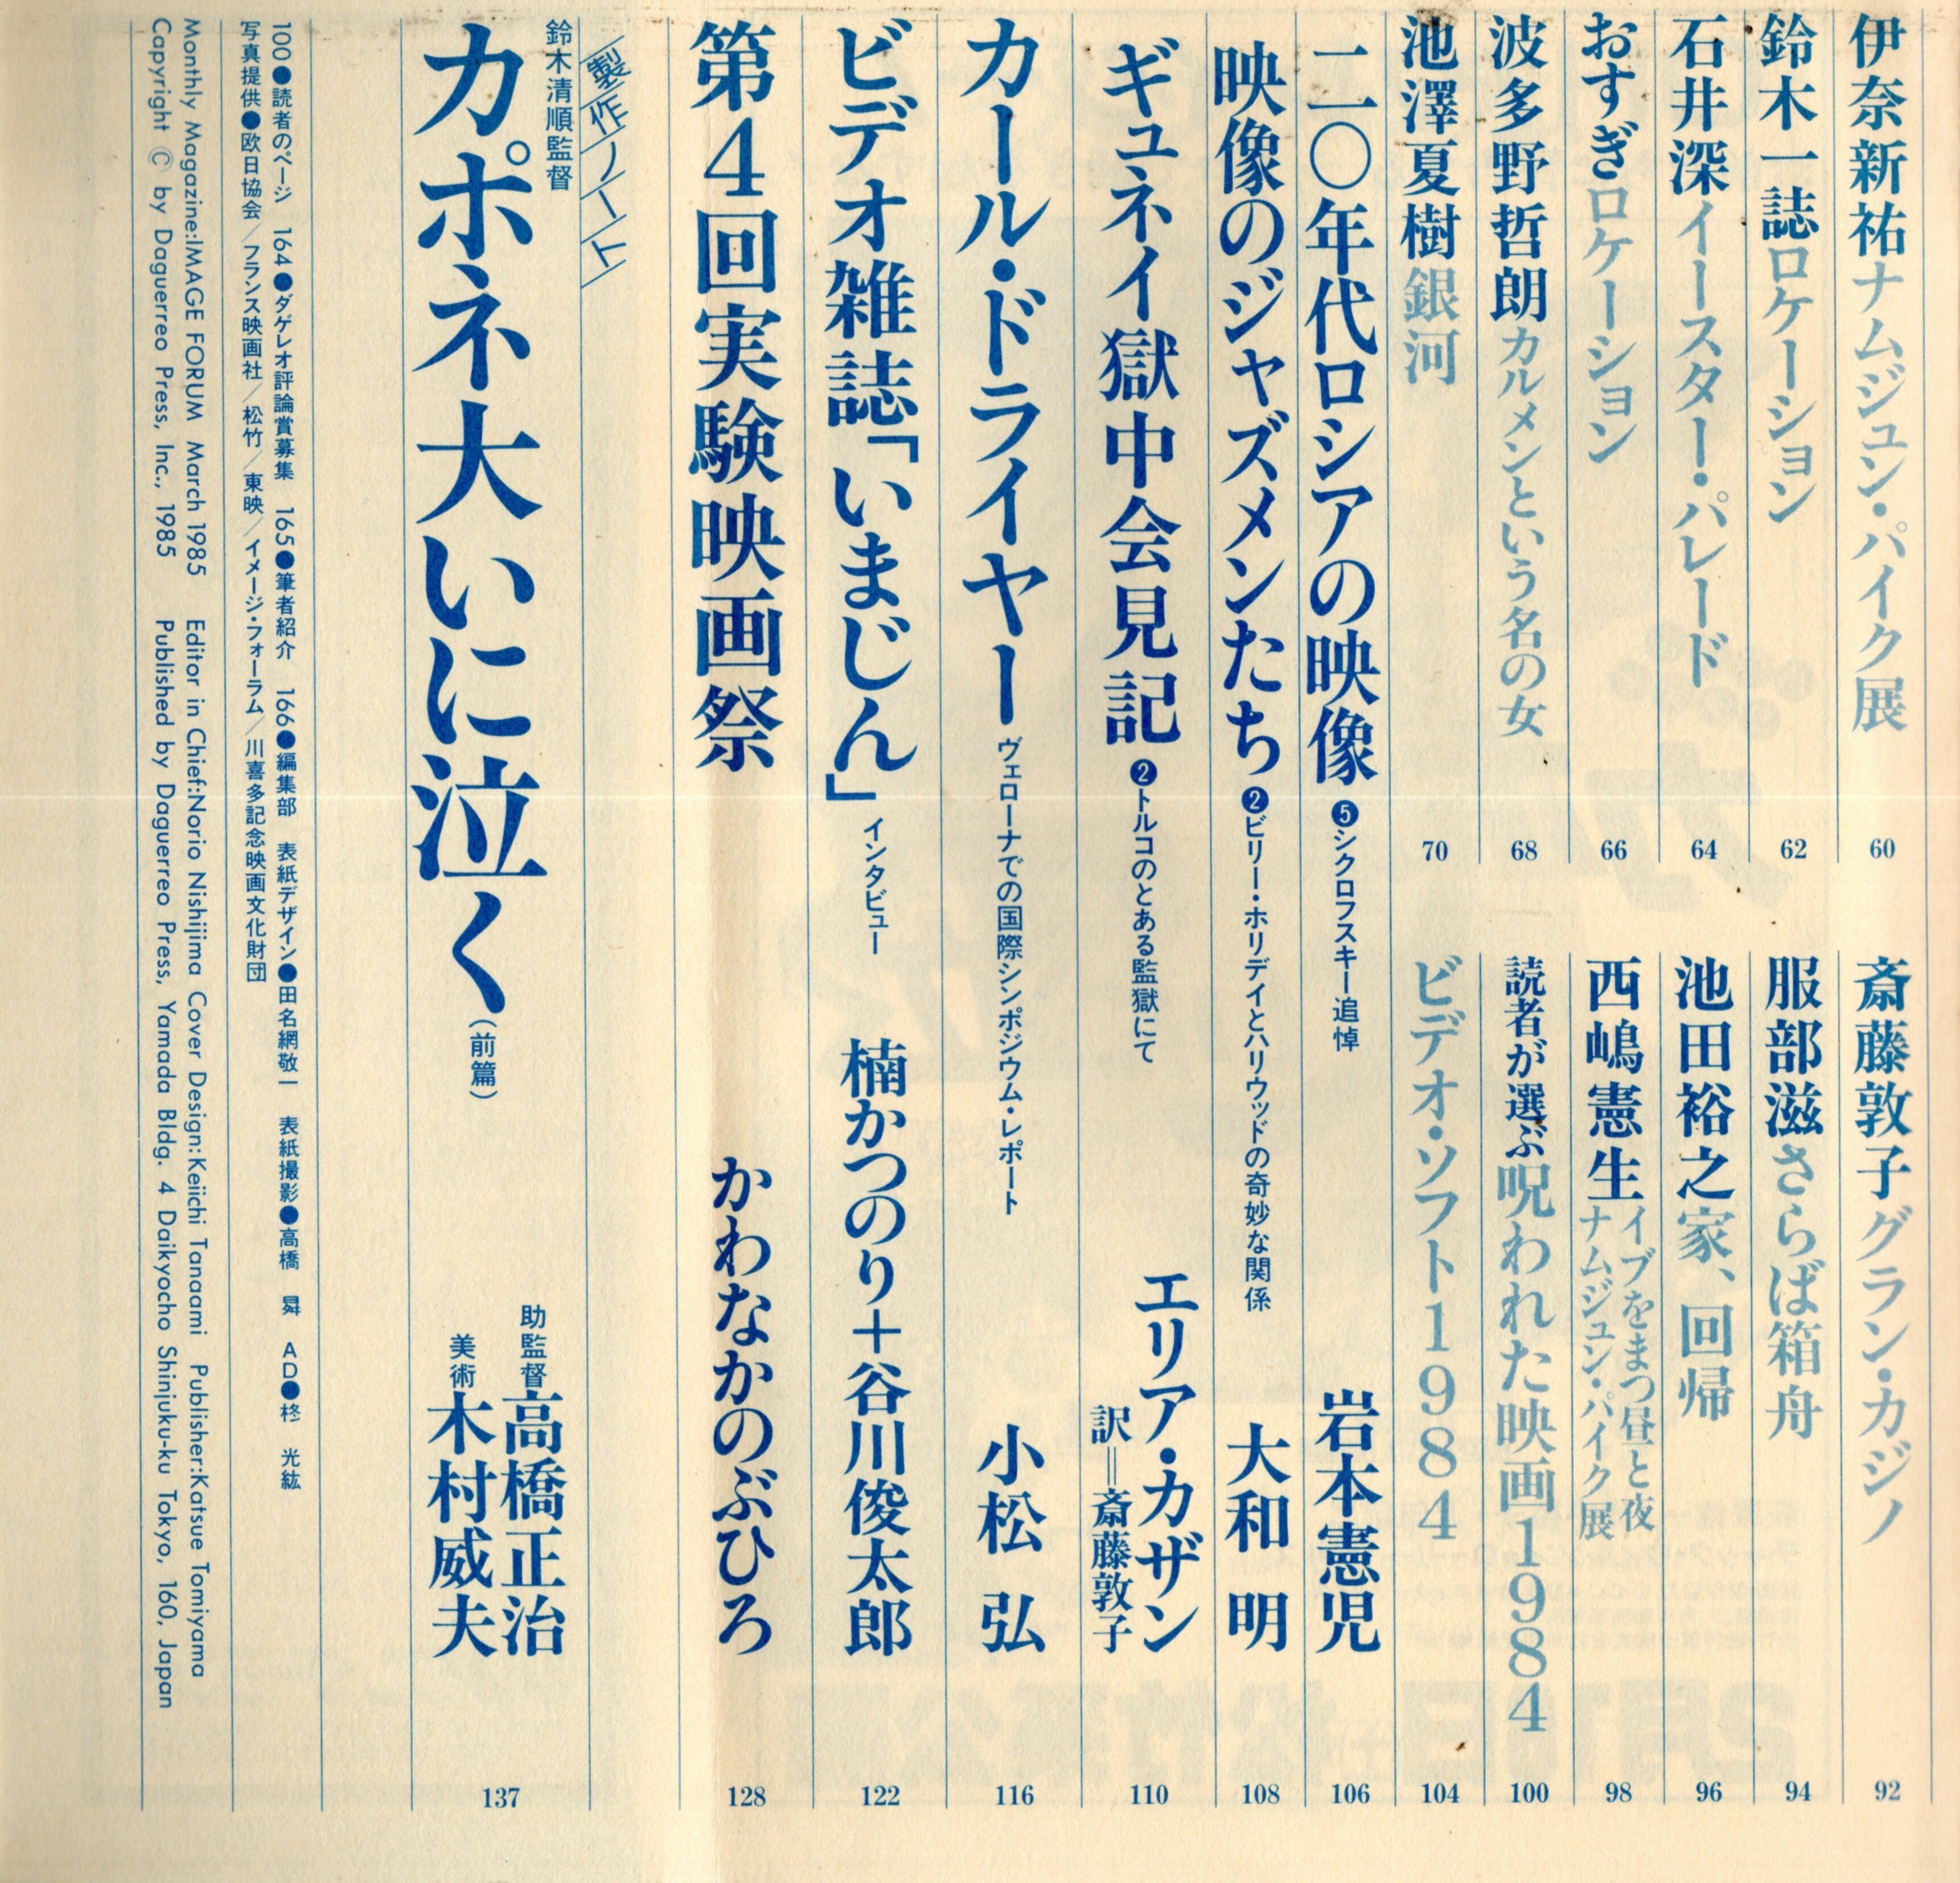 伊奈新祐ナムジュン・パイク展 60
鈴木一誌ロケーション 62
石井深イースター・パレード 64
おすぎロケーション 66
波多野哲朗カルメンという名の女 68
池澤夏樹銀河 70
斎藤敦子グラン・カジノ 92
服部滋さらば箱舟 94
池田裕之家、回帰 96
西嶋憲生イブをまつ昼と夜
ナムジュン・パイク展 98
読者が選ぶ呪われた映画1984 100
ビデオ・ソフト1984 104
二〇年代ロシアの映像 ❺シクロフスキー追悼 岩本憲児 106
映像のジャズメンたち ❷ビリー・ホリデイとハリウッドの奇妙な関係 大和 明 108
ギュネイ獄中会見記 ❷トルコのとある監獄にて エリア・カザン
訳=斎藤敦子 110
カール・ドライヤー ヴェローナでの国際シンポジウム・レポート 小松 弘 116
ビデオ雑誌「いまじん」 インタビュー 楠かつのり+谷川俊太郎 122
第4回実験映画祭 かわなかのぶひろ 128
製作ノート
鈴木清順監督
カポネ大いに泣く(前篇)
助監督 高橋正治
美術 木村威夫
137
100●読者のページ 164●ダゲレオ評論賞募集 165●筆者紹介 166●編集部 表紙デザイン●田名網敬一 表紙撮影●高橋 曻 AD●柊 光紘
写真提供●欧日協会/フランス映画社/松竹/東映/イメージ・フォーラム/川喜多記念映画文化財団
Monthly Magazine:IMAGE FORUM March 1985 Editor in Chief:Norio Nishijima Cover Design:Keiichi Tanaami Publisher:Katsue Tomiyama
Copyright © by Daguerreo Press, Inc., 1985 Published by Daguerreo Press, Yamada Bldg. 4 Daikyocho Shinjuku-ku Tokyo, 160, Japan